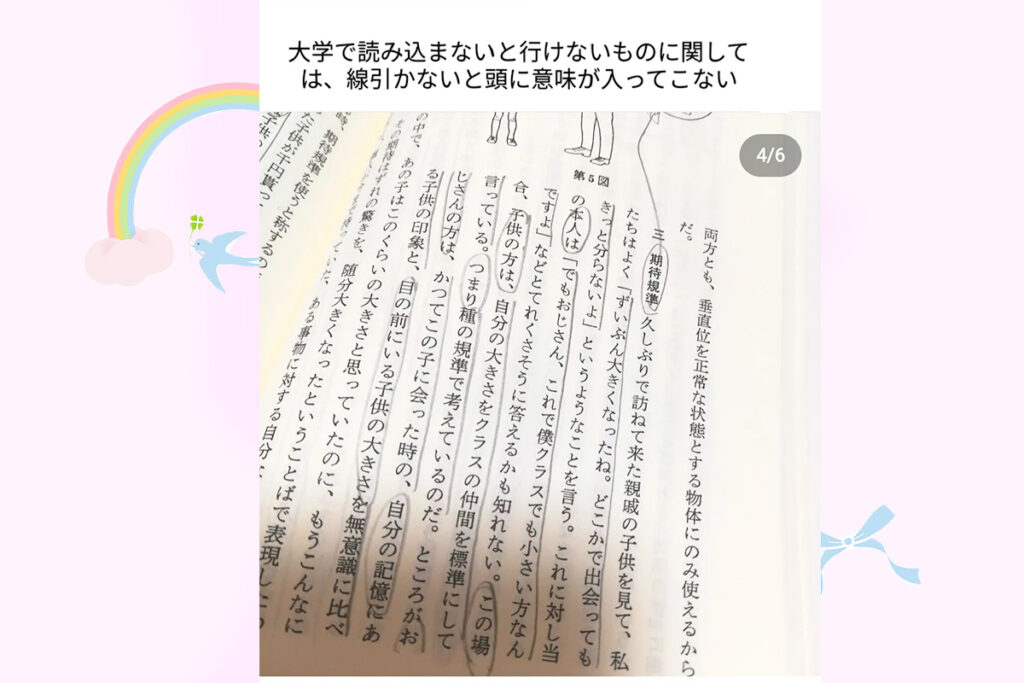 大学で読み込まないと行けないものに関して
は、線引かないと頭に意味が入ってこない
4/6
両方とも、垂直位を正常な状態とする物体にのみ使えるから
だ。
三 期待規準 久しぶりで訪ねて来た親戚の子供を見て、私
たちはよく「ずいぶん大きくなったね。どこかで出会っても
きっと分らないよ」というようなことを言う。これに対し当
の本人は「でもおじさん、これで僕クラスでも小さい方なん
ですよ」などとてれくさそうに答えるかも知れない。この場
合、子供の方は、自分の大きさをクラスの仲間を標準にして
言っている。つまり種の規準で考えているのだ。ところがお
じさんの方は、かつてこの子に会った時の、自分の記憶にあ
る子供の印象と、目の前にいる子供の大きさを無意識に比べ
の中で、あの子はこのくらいの大きさと思っていたのに、もうこんなに
その期待はずれの驚きを、随分大きくなったということばで表現した
ある事物に対する自分
時、期待規準を使うと称するの
た子供が千円貰っ
子供の
第5図